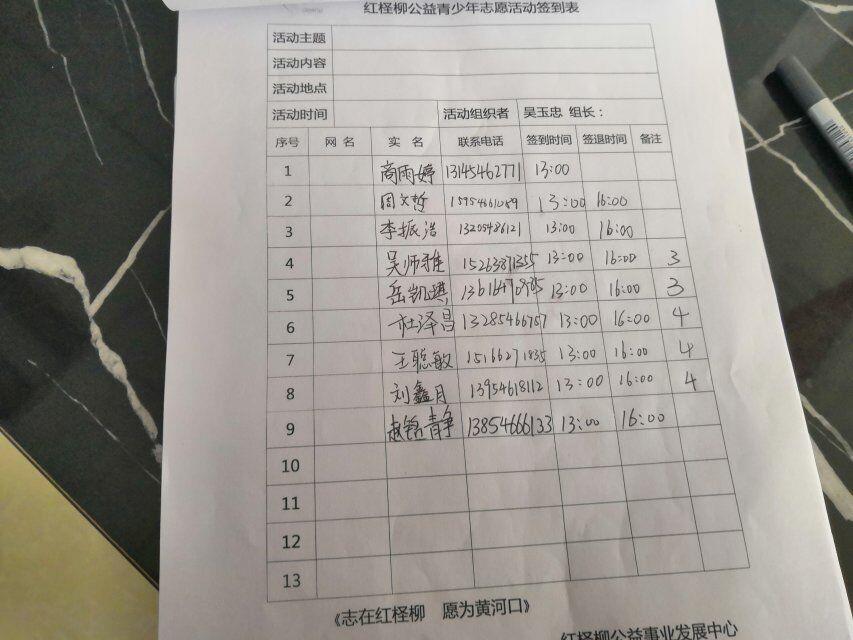 红柽柳公益青少年志愿活动签到表
活动主题
活动内容
活动地点
活动时间 活动组织者 吴玉忠 组长：
序号 网 名 实 名 联系电话 签到时间 签退时间 备注
1 商雨婷 13145462771 13:00
2 周文哲 15954661089 13:00 16:00
3 李振浩 13205486121 13:00 16:00
4 吴师雅 15263871355 13:00 16:00 3
5 岳凯琪 13:00 16:00 3
6 杜泽昌 13285466757 13:00 16:00 4
7 王聪敏 15166271835 13:00 16:00 4
8 刘鑫月 13954618112 13:00 16:00 4
9 13854666133 13:00 16:00
10
11
12
13
《志在红柽柳 愿为黄河口》
红柽柳公益事业发展中心